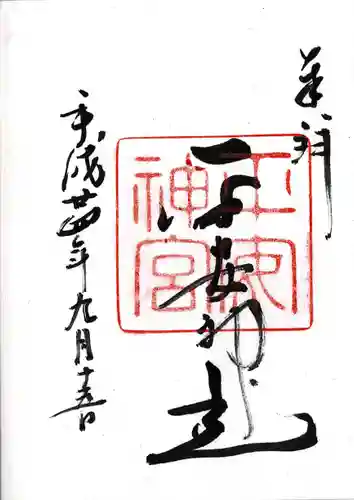 奉拝
平安神宮
平安神宮
平成廿四年九月十五日